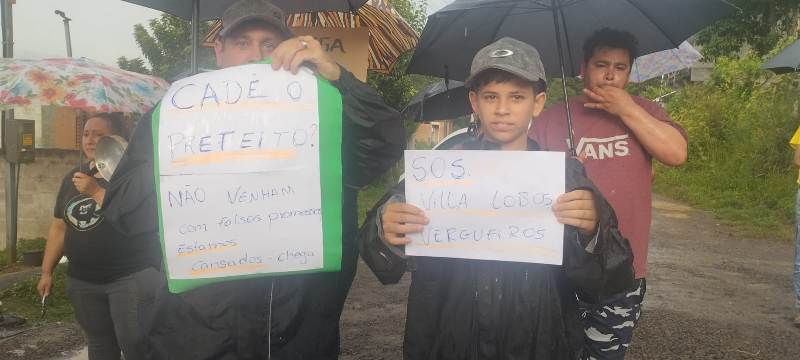 CADÊ O
PRETEITO?
NÃO VENHAM
com falsas promessas
Estamos
cansados - chega
SOS.
VILLA LOBOS
VERGUEIROS
VANS
GA